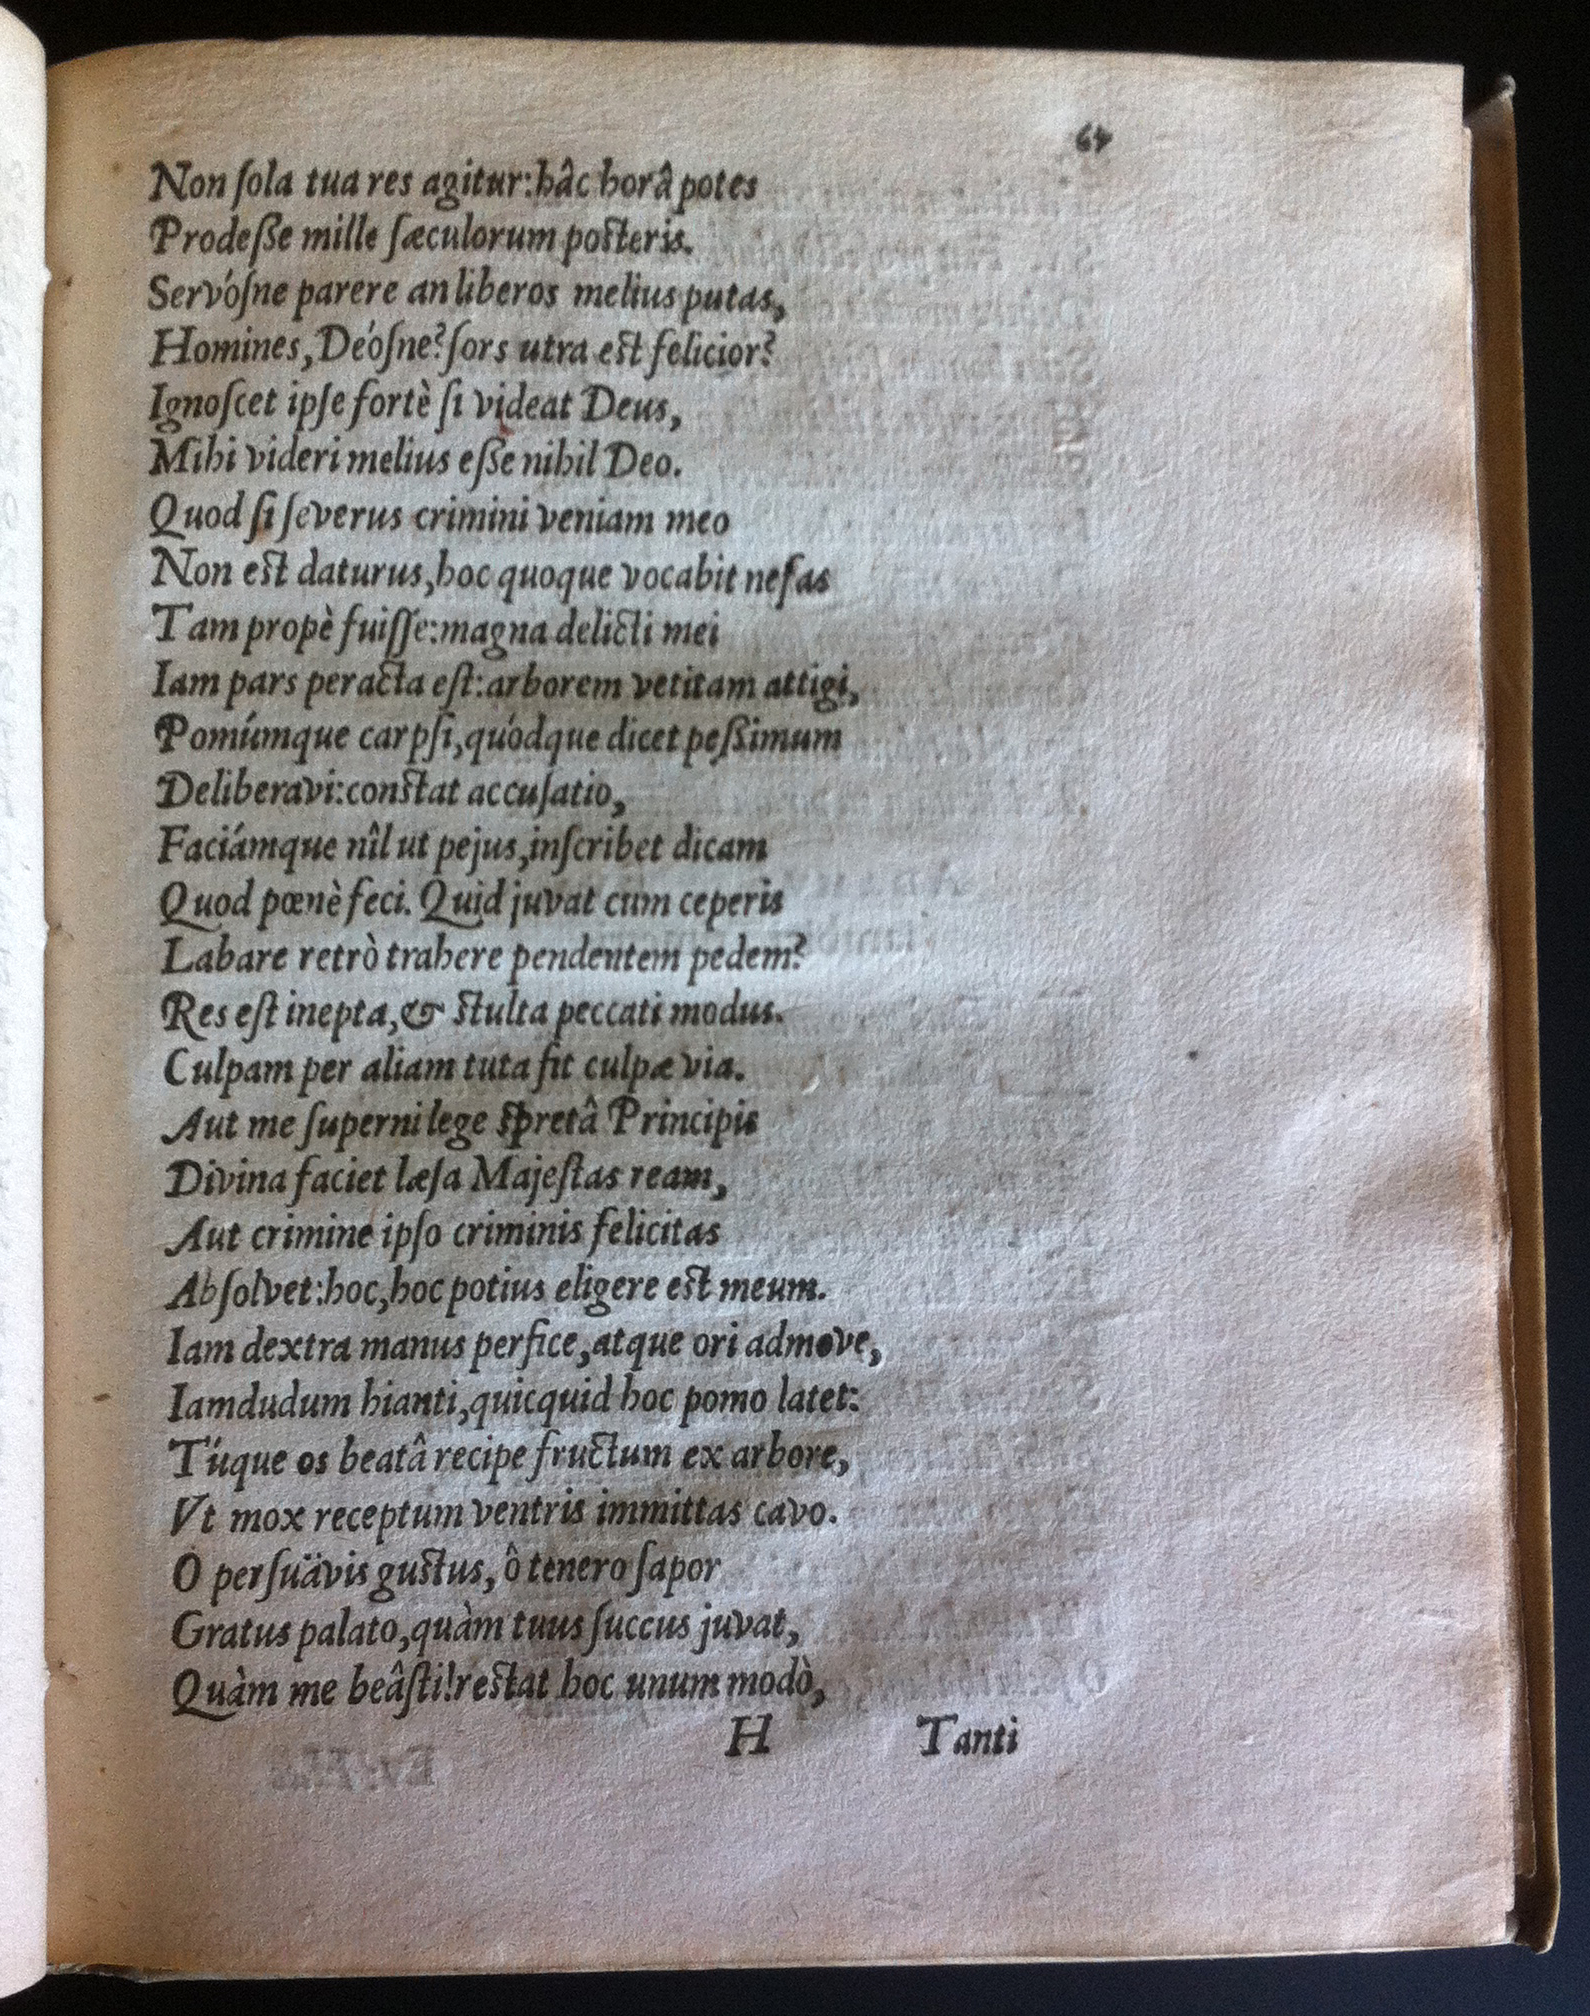 64
Non ſola tua res agitur:hâc horâ potes
Prodeſſe mille ſæculorum poſteris.
Servóſne parere an liberos melius putas,
Homines, Deóſne? ſors utra eſt felicior?
Ignoſcet ipſe fortè ſi videat Deus,
Mihi videri melius eſſe nihil Deo.
Quod ſi ſeverus crimini veniam meo
Non eſt daturus,hoc quoque vocabit nefas
Tam propè fuiſſe:magna delicti mei
Iam pars peracta eſt:arborem vetitam attigi,
Pomúmque carpſi,quódque dicet peſſimum
Deliberavi:conſtat accuſatio,
Faciámque nîl ut pejus,inſcribet dicam
Quod pœnè feci. Quid juvat cum ceperis
Labare retrò trahere pendentem pedem?
Res eſt inepta,& ſtulta peccati modus.
Culpam per aliam tuta fit culpæ via.
Aut me ſuperni lege ſpretâ Principis
Divina faciet læſa Majeſtas ream,
Aut crimine ipſo criminis felicitas
Abſolvet:hoc,hoc potius eligere eſt meum.
Iam dextra manus perfice,atque ori admove,
Iamdudum hianti,quicquid hoc pomo latet:
Túque os beatâ recipe fructum ex arbore,
Vt mox receptum ventris immittas cavo.
O perſuävis guſtus, ô tenero ſapor
Gratus palato,quàm tuus ſuccus juvat,
Quàm me beâſti!reſtat hoc unum modò,
H Tanti